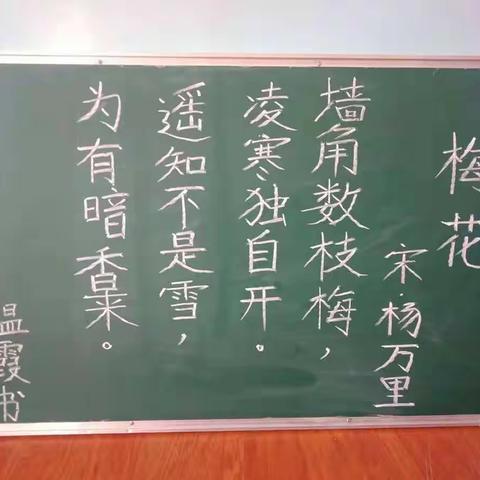 梅花
宋·杨万里
墙角数枝梅，
凌寒独自开。
遥知不是雪，
为有暗香来。
温霞书